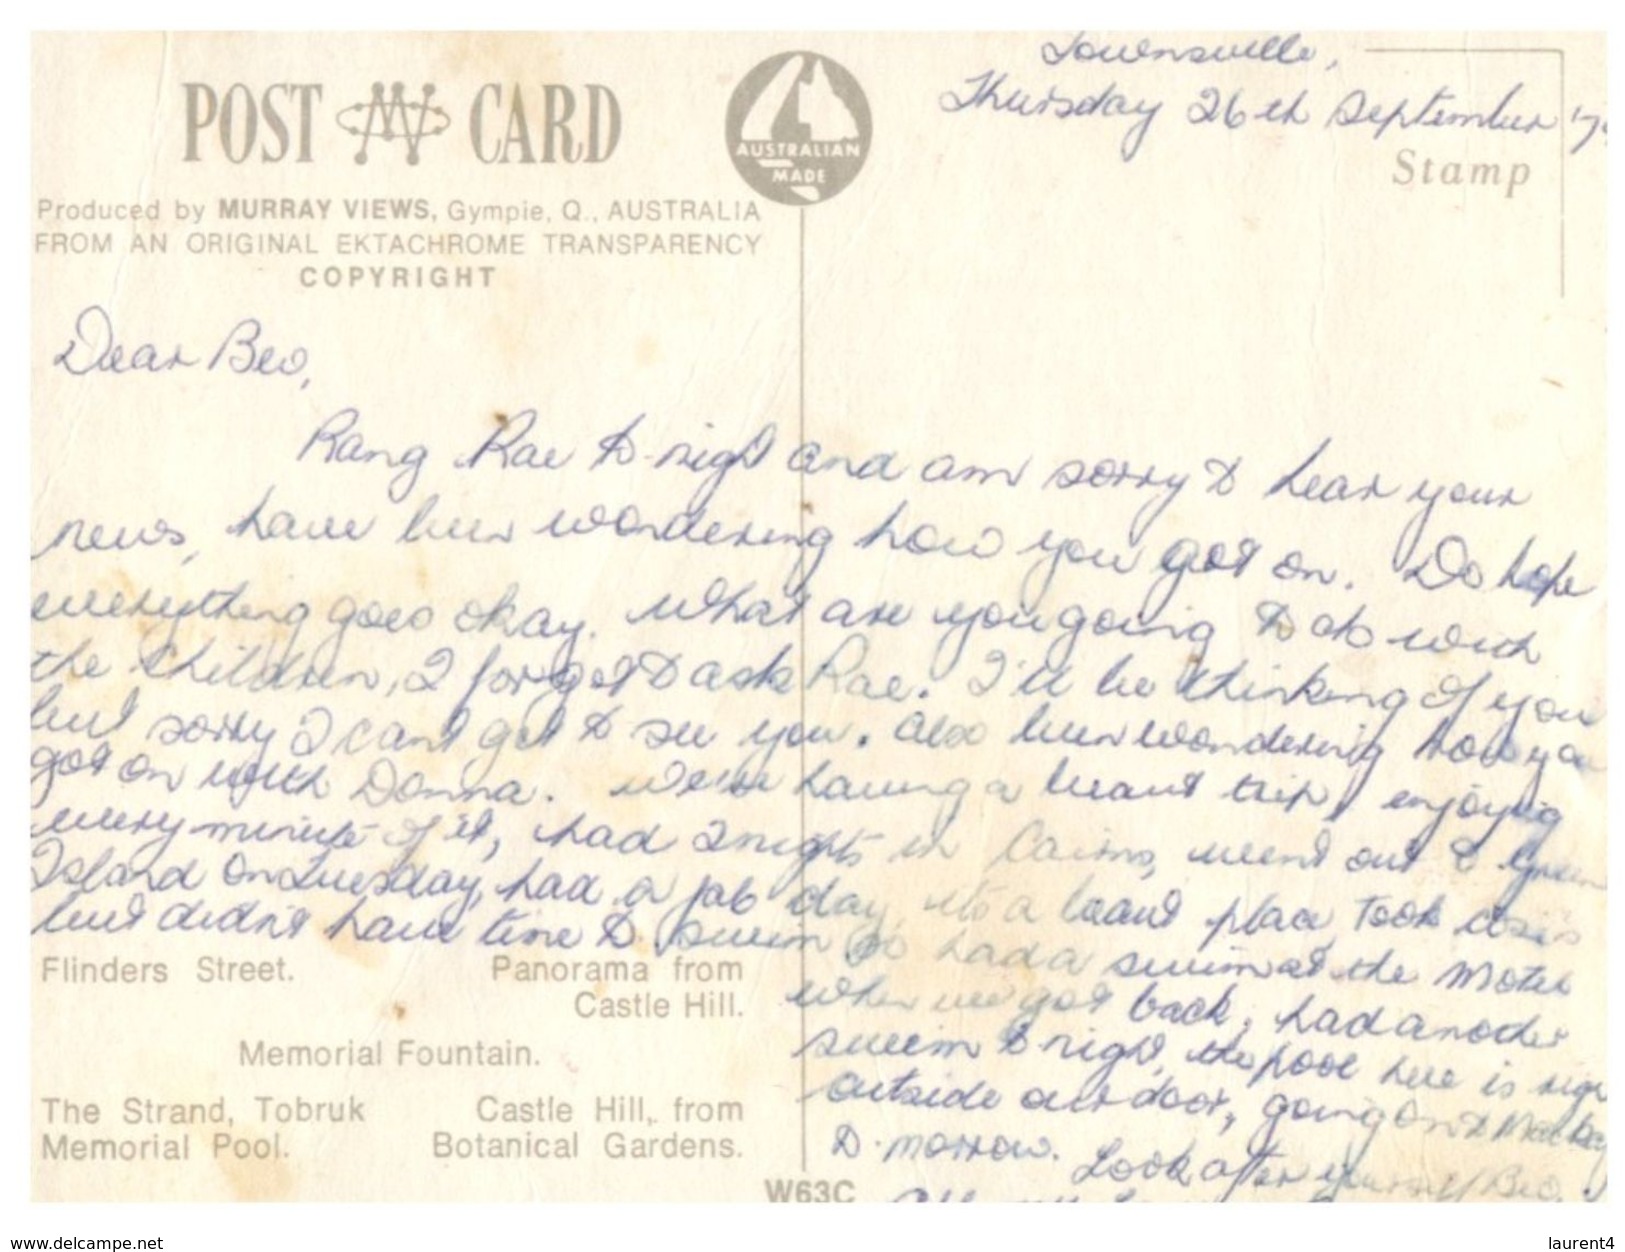 Townsville,
Thursday 26th September '7
POST CARD
AUSTRALIAN
MADE
Stamp
Produced by MURRAY VIEWS, Gympie, Q., AUSTRALIA
FROM AN ORIGINAL EKTACHROME TRANSPARENCY
COPYRIGHT
Dear Bev,
Rang Rae to-night and am sorry to hear your
news, have been wondering how you got on. Do hope
everything goes okay. What are you going to do with
the children, I forgot to ask Rae. I'll be thinking of you
but sorry I cant get to see you. Also been wondering how you
got on with Donna. We're having a beaut trip, enjoying
every minute of it, had 2 nights in Cairns, went out to Green
Island on Tuesday, had a fab day, its a beaut place Took cossies
but didn't have time to swim so had a swim at the Motel
when we got back, had another
swim to night, the pool here is righ
outside our door, going on to Mackay
to-morrow. Look after yourself Bev.
All my
Flinders Street.
Panorama from
Castle Hill.
Memorial Fountain.
The Strand, Tobruk
Memorial Pool.
Castle Hill, from
Botanical Gardens.
W63C
www.delcampe.net
laurent4